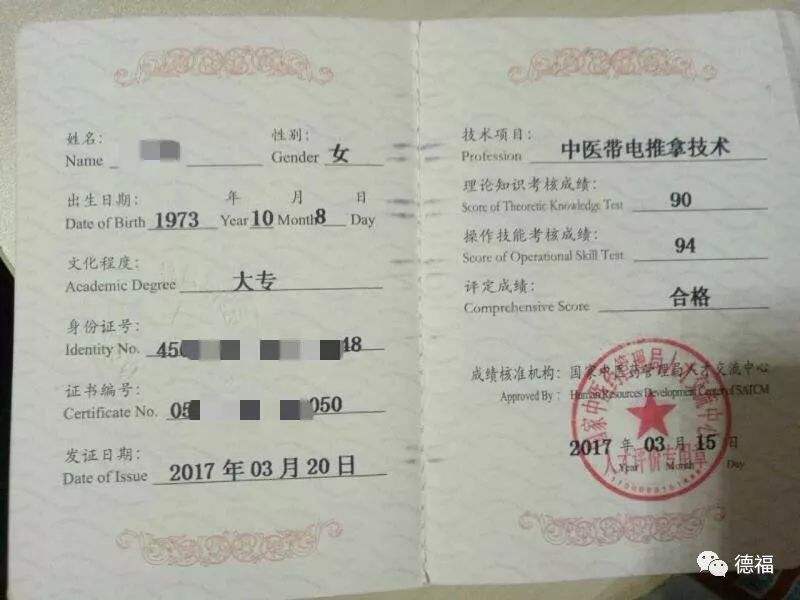 姓名：
Name
性别：
Gender 女
出生日期： 年 月 日
Date of Birth 1973 Year 10 Month 8 Day
文化程度：
Academic Degree 大专
身份证号：
Identity No. 450 48
证书编号：
Certificate No. 05 050
发证日期：
Date of Issue 2017 年 03 月 20 日
技术项目：
Profession 中医带电推拿技术
理论知识考核成绩：
Score of Theoretic Knowledge Test 90
操作技能考核成绩：
Score of Operational Skill Test 94
评定成绩：
Comprehensive Score 合格
成绩核准机构：国家中医药管理局人才交流中心
Approved By： Human Resources Development Center of SATCM
2017 年 03 月 15 日
Year Month Day
国家中医药管理局人才交流中心
人才评价专用章
德福